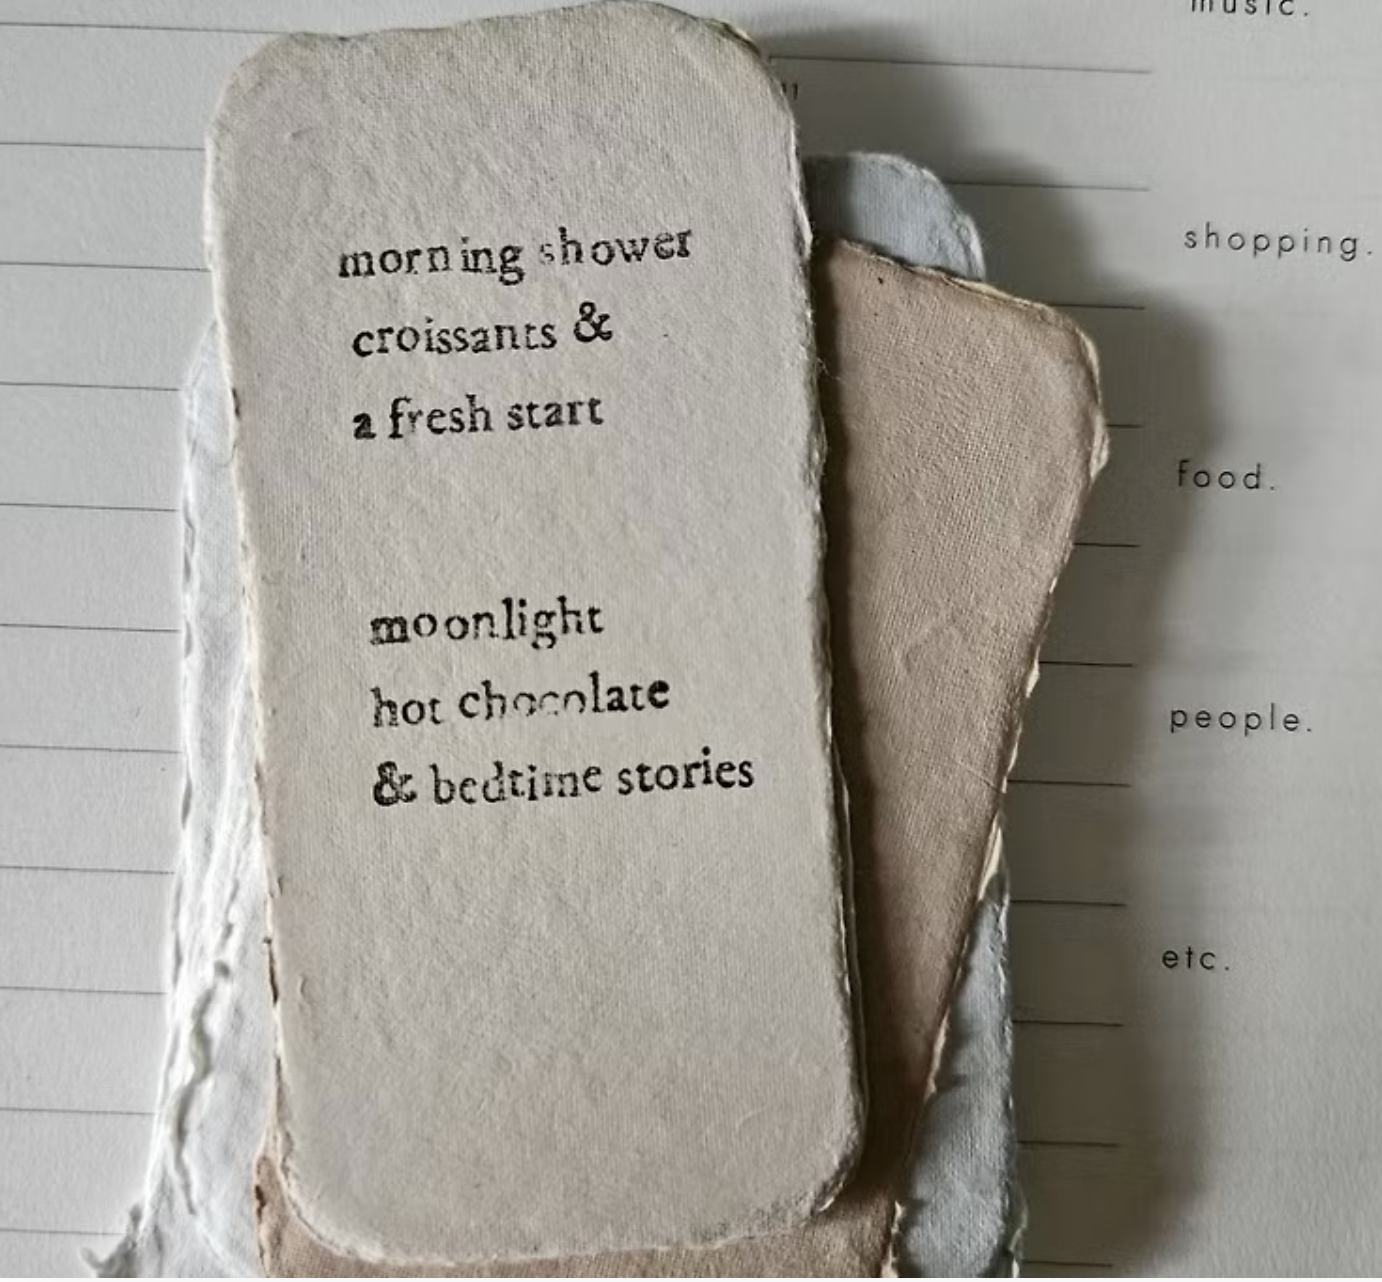 morning shower
croissants &
a fresh start
moonlight
hot chocolate
& bedtime stories
music.
shopping.
food.
people.
etc.